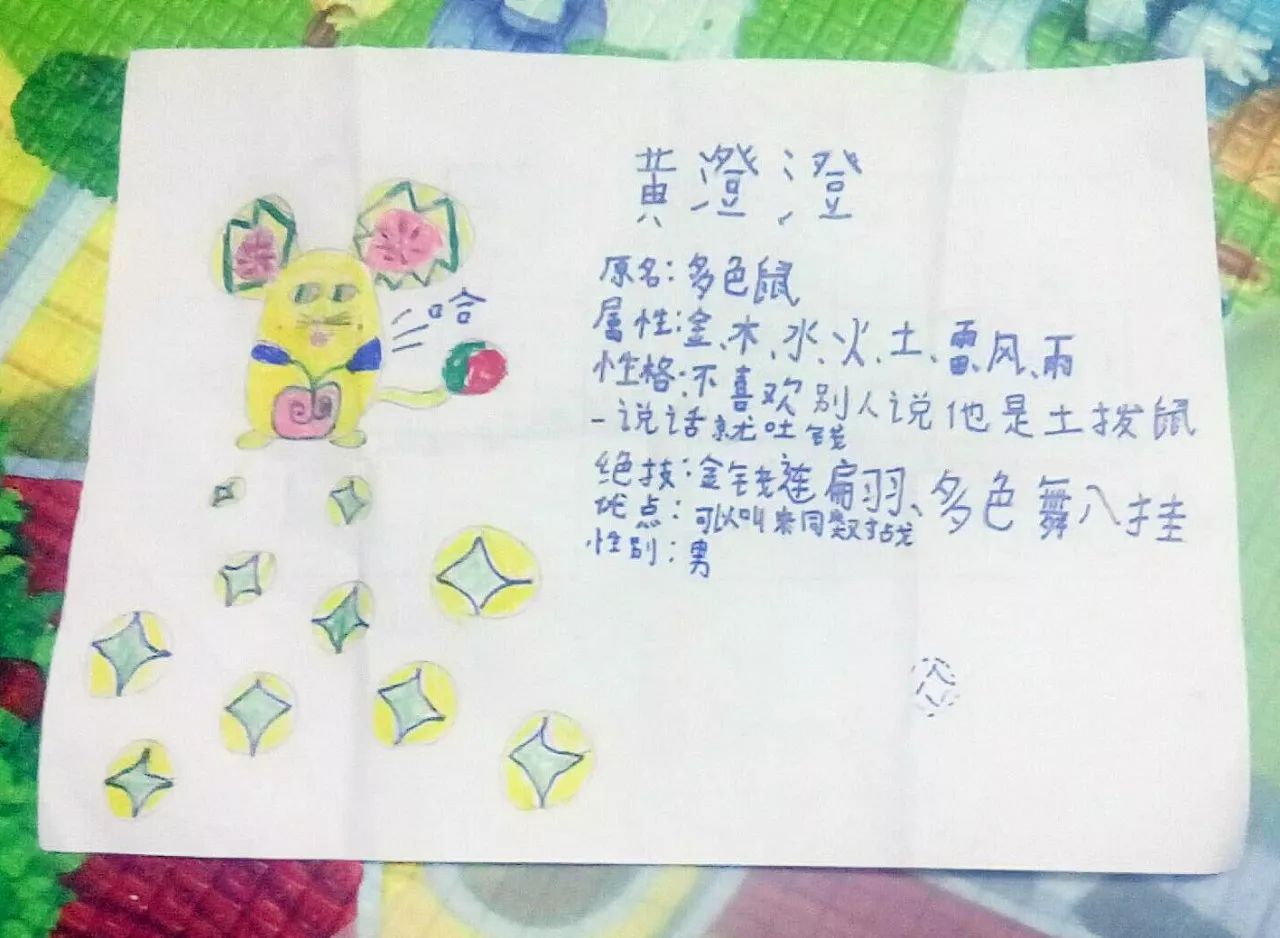 黄澄澄
哈
原名：多色鼠
属性：金、木、水、火、土、雷、风、雨
性格：不喜欢别人说他是土拨鼠
一说话就吐钱
绝技：金钱连扁羽、多色舞八挂
优点：可以叫来同类文占戈
性别：男